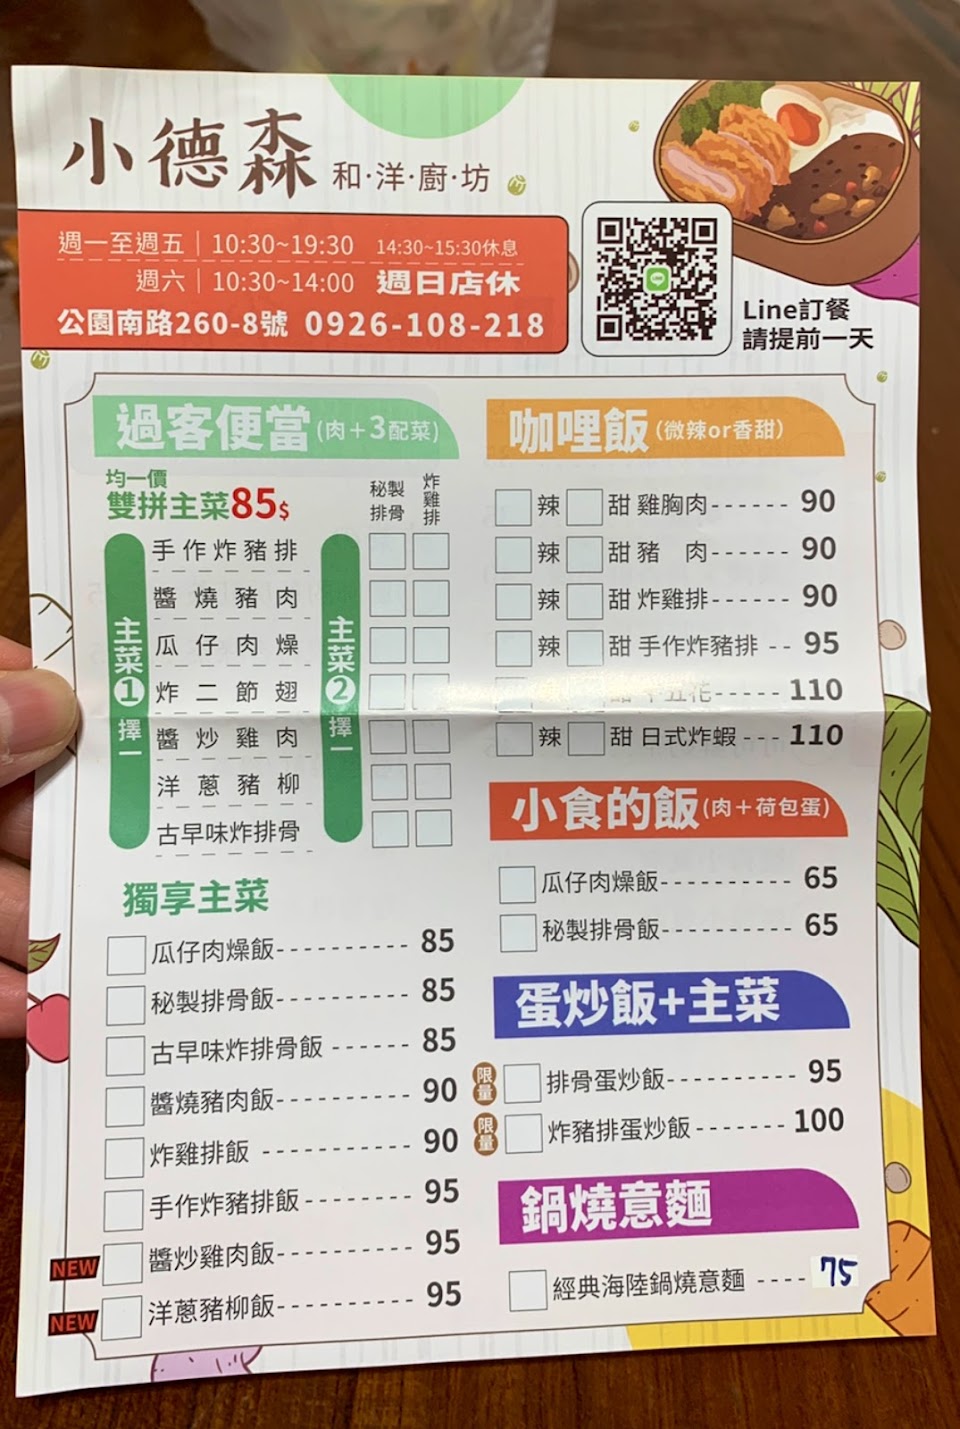 小德森 和·洋·廚·坊
週一至週五｜10:30~19:30 14:30~15:30休息
週六｜10:30~14:00 週日店休
公園南路260-8號 0926-108-218
Line訂餐
請提前一天
過客便當(肉＋3配菜)
均一價
雙拼主菜85$
秘製排骨
炸雞排
主菜1擇一
手作炸豬排
醬燒豬肉
瓜仔肉燥
炸二節翅
醬炒雞肉
洋蔥豬柳
古早味炸排骨
主菜2擇一
獨享主菜
瓜仔肉燥飯---------- 85
秘製排骨飯---------- 85
古早味炸排骨飯 ------ 85
醬燒豬肉飯---------- 90
炸雞排飯 ----------- 90
手作炸豬排飯-------- 95
NEW 醬炒雞肉飯---------- 95
NEW 洋蔥豬柳飯---------- 95
咖哩飯(微辣or香甜)
辣 甜 雞胸肉------ 90
辣 甜 豬 肉------ 90
辣 甜 炸雞排------ 90
辣 甜 手作炸豬排 -- 95
五花----- 110
辣 甜 日式炸蝦--- 110
小食的飯(肉＋荷包蛋)
瓜仔肉燥飯---------- 65
秘製排骨飯---------- 65
蛋炒飯+主菜
限量 排骨蛋炒飯---------- 95
限量 炸豬排蛋炒飯------- 100
鍋燒意麵
經典海陸鍋燒意麵 ---- 75